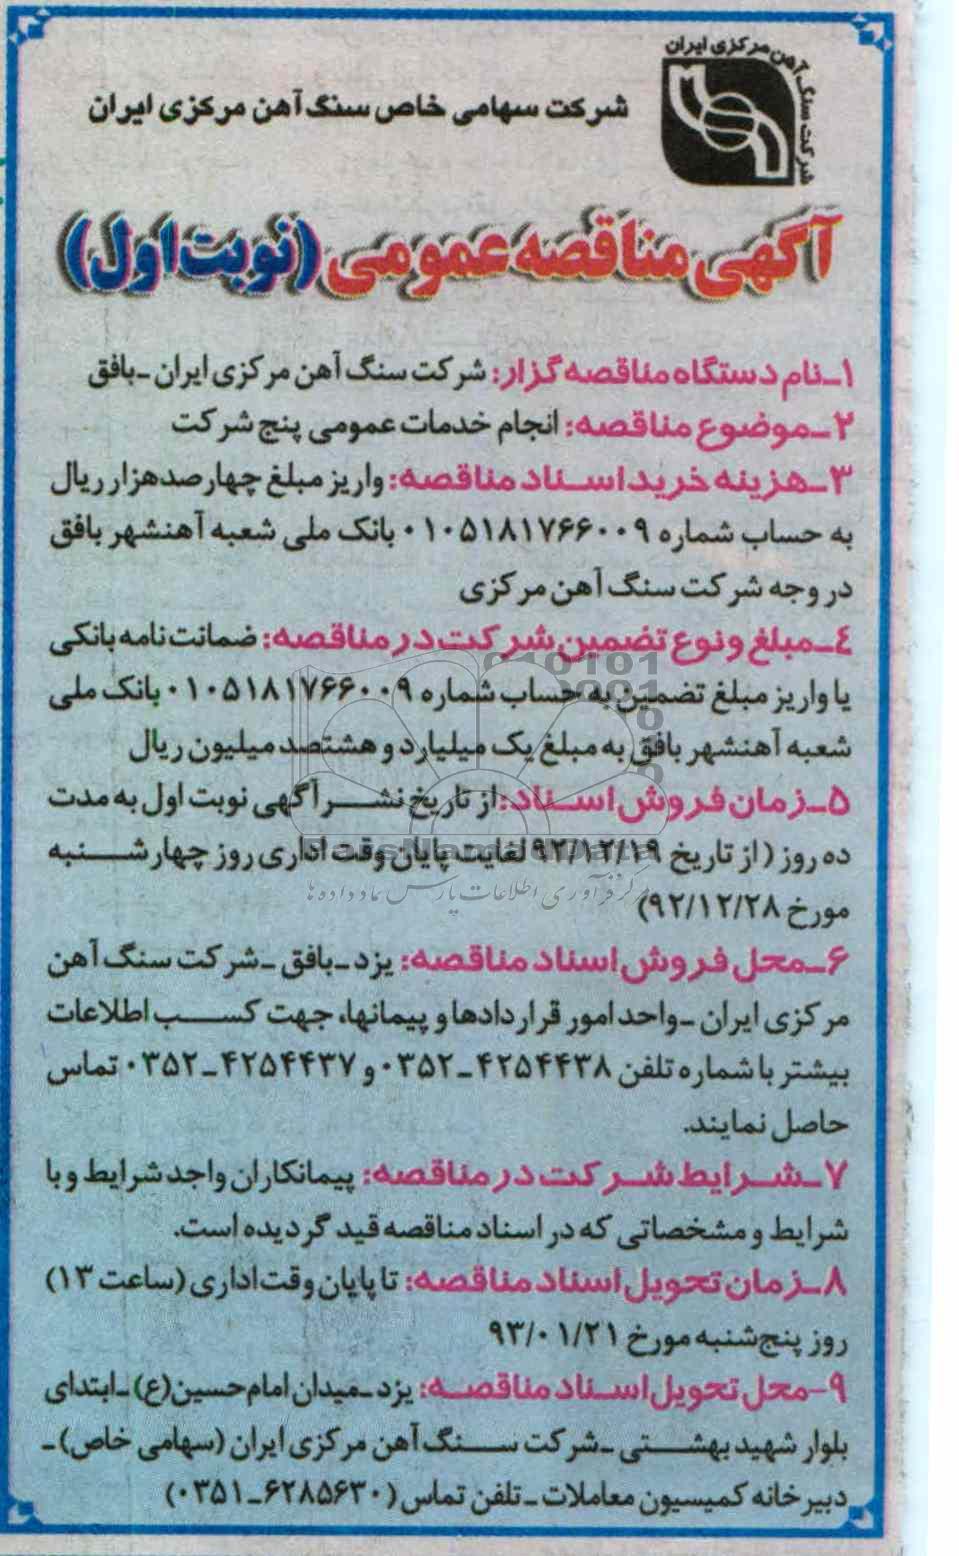 شرکت سنگ آهن مرکزی ایران
شرکت سهامی خاص سنگ آهن مرکزی ایران
آگهی مناقصه عمومی (نوبت اول)
۱ـ نام دستگاه مناقصه گزار: شرکت سنگ آهن مرکزی ایران ـ بافق
۲ـ موضوع مناقصه: انجام خدمات عمومی پنج شرکت
۳ـ هزینه خرید اسناد مناقصه: واریز مبلغ چهارصد هزار ریال
به حساب شماره ۰۱۰۵۱۸۱۷۶۶۰۰۹ بانک ملی شعبه آهنشهر بافق
در وجه شرکت سنگ آهن مرکزی
۴ـ مبلغ و نوع تضمین شرکت در مناقصه: ضمانت نامه بانکی
یا واریز مبلغ تضمین به حساب شماره ۰۱۰۵۱۸۱۷۶۶۰۰۹ بانک ملی
شعبه آهنشهر بافق به مبلغ یک میلیارد و هشتصد میلیون ریال
۵ـ زمان فروش اسناد: از تاریخ نشر آگهی نوبت اول به مدت
ده روز (از تاریخ ۹۲/۱۲/۱۹ لغایت پایان وقت اداری روز چهارشنبه
مورخ ۹۲/۱۲/۲۸)
۶ـ محل فروش اسناد مناقصه: یزد ـ بافق ـ شرکت سنگ آهن
مرکزی ایران ـ واحد امور قراردادها و پیمانها، جهت کسب اطلاعات
بیشتر با شماره تلفن ۴۲۵۴۴۳۸ـ۰۳۵۲ و ۴۲۵۴۴۳۷ـ۰۳۵۲ تماس
حاصل نمایند.
۷ـ شرایط شرکت در مناقصه: پیمانکاران واجد شرایط و با
شرایط و مشخصاتی که در اسناد مناقصه قید گردیده است.
۸ـ زمان تحویل اسناد مناقصه: تا پایان وقت اداری (ساعت ۱۳)
روز پنج‌شنبه مورخ ۹۳/۰۱/۲۱
۹-محل تحویل اسناد مناقصه: یزد ـ میدان امام حسین(ع) ـ ابتدای
بلوار شهید بهشتی ـ شرکت سنگ آهن مرکزی ایران (سهامی خاص) ـ
دبیرخانه کمیسیون معاملات ـ تلفن تماس (۶۲۸۵۶۳۰ـ۰۳۵۱)
ParsNamadData
مرکز فرآوری اطلاعات پارس نماد داده ها